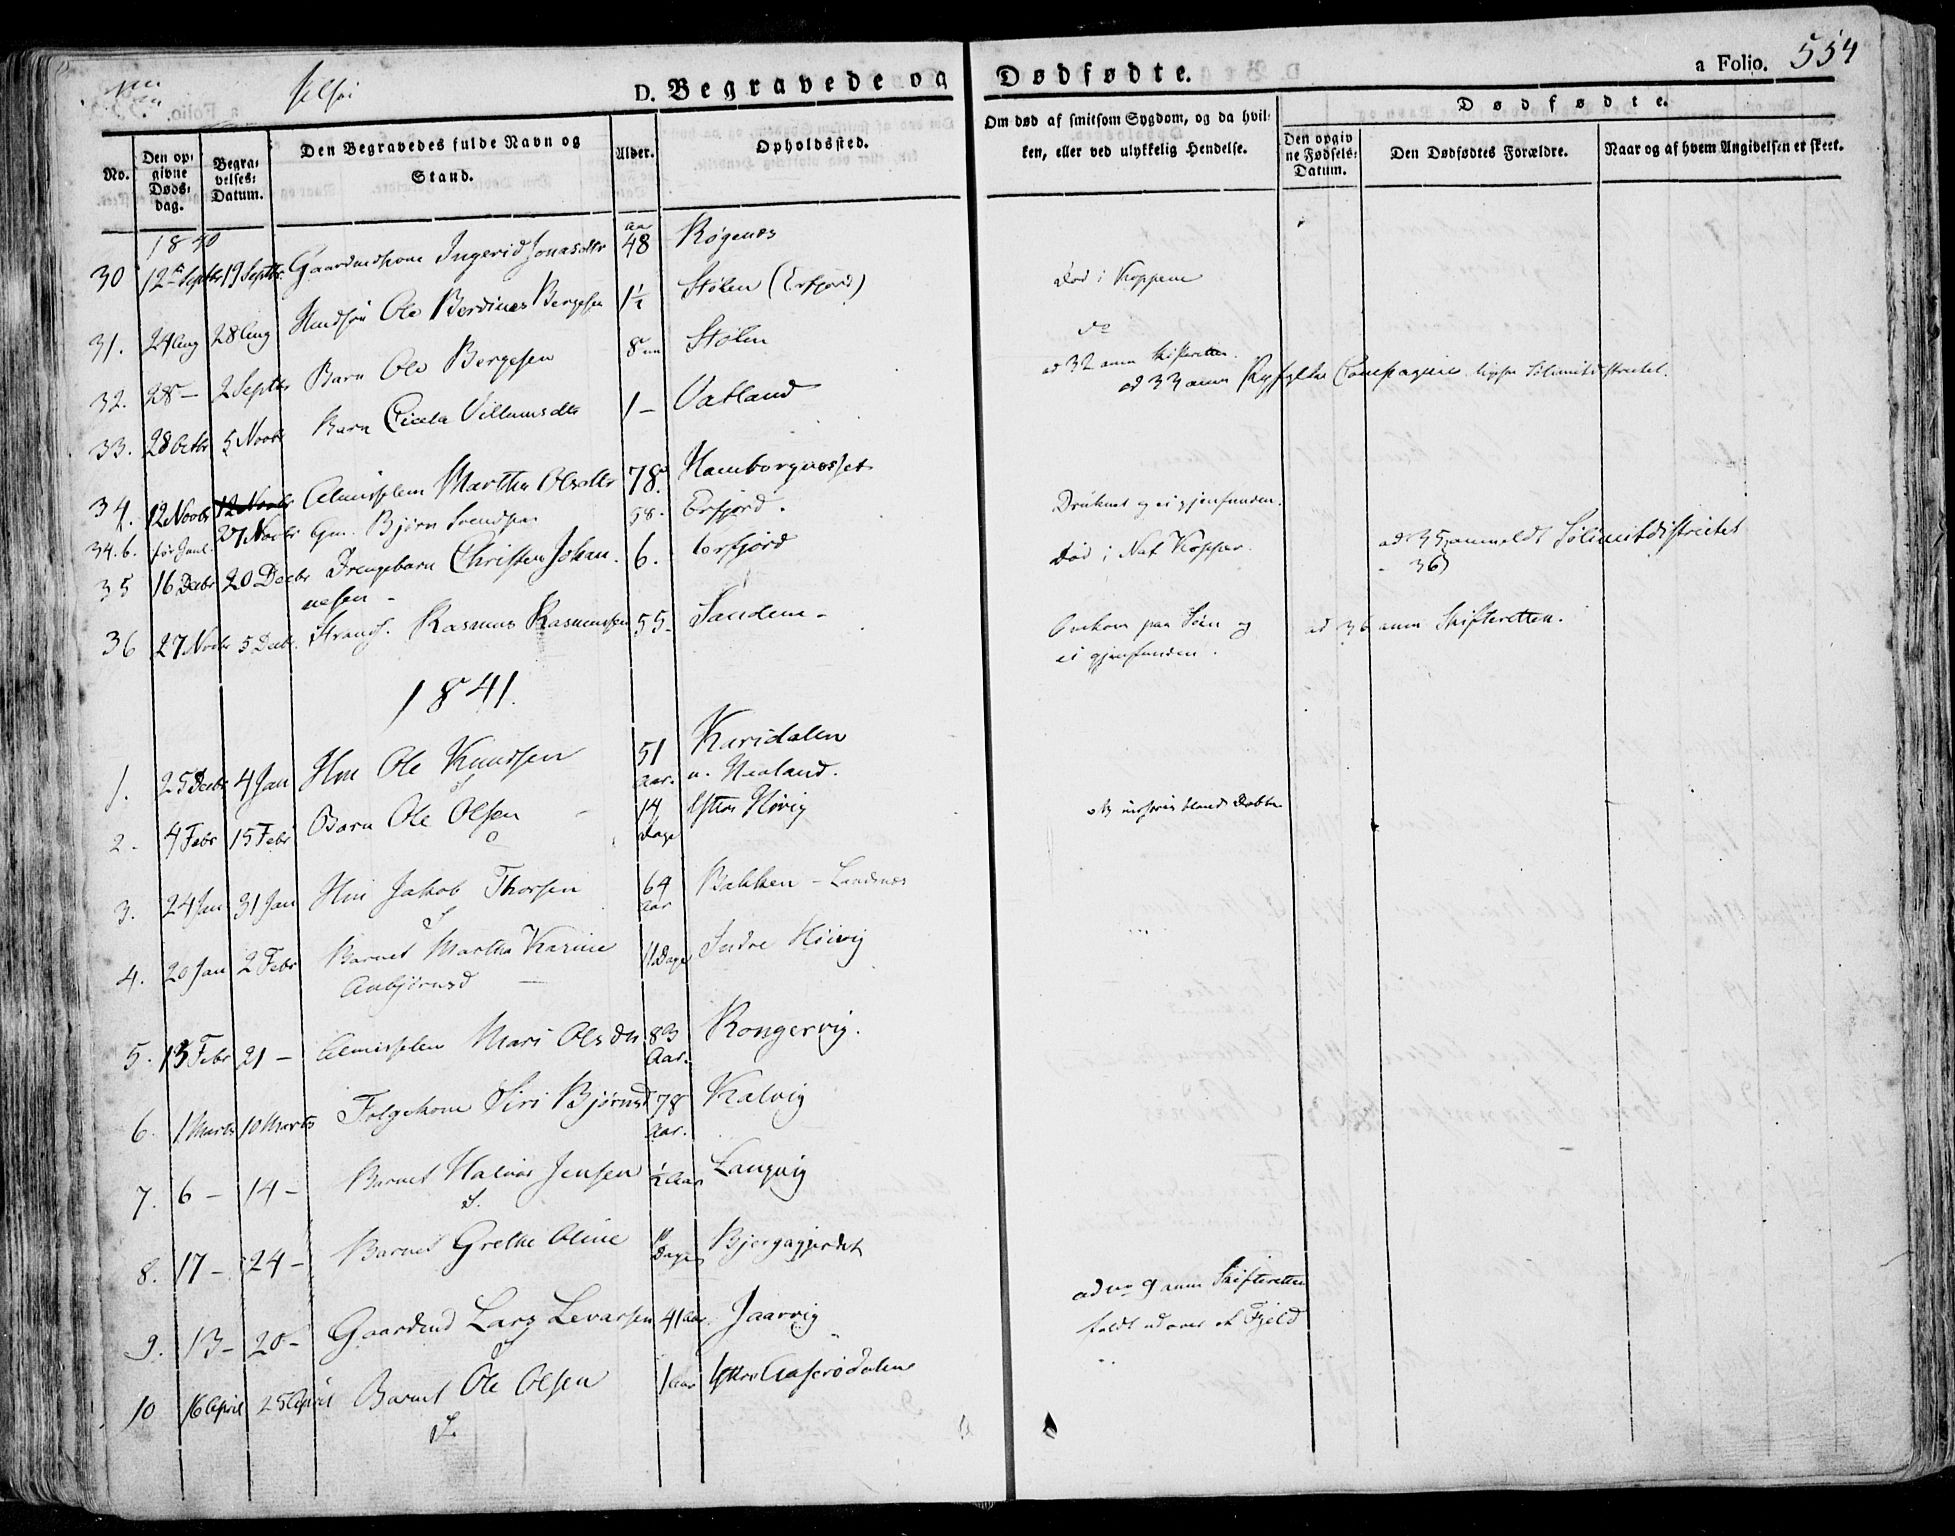 Jelsøi
D. Begravede og Dødfødte. a Folio. 554
No. Den opgivne Dødsdag. Begravelses-Datum. Den Begravedes fulde Navn og Stand. Alder. Opholdssted. Om død af smitsom Sygdom, og da hvilken, eller ved ulykkelig Hendelse. Dødfødte.
Den opgivne Fødsels-Datum. Den Dødfødtes Forældre. Naar og af hvem Angivelsen er skeet.
1840
30 12 Septbr 19 Septbr. Gaardmdkone Ingerid Jonasdtr 48 Røgenæs
31. 24 Aug 28 Aug Ole Berdines Bergesen 1½ Stølen (Erfjord) død i Kopperne
32. 28 — 2 Septbr Barn Ole Bergesen 8 Stølen do
ad 32 anm Skifteretten.
ad 33 anm Ryfylke Compagnie
33. 28 Octbr 5 Novbr Barn Cicela Villumsdtr 1 — Vatland
34. 12 Novbr 12 Novbr Almisselem Martha Olsdtr 78. Hamborgnesset
34.b. før Juul. 27 Novbr Gm. Bjørn Svendsen 58. Erfjord. Druknet og ei gjenfunden.
35 16 Decbr 20 Decbr Drengebarn Christen Johannesen — 6. Erfjord Død i Nat. Kopper. ad 35 anmeldt
- 36
36 27 Novbr 5 Decbr. Strands. Rasmus Rasmussen 55 - Sandene - Omkom paa Søen og ei gjenfunden. ad 36 anm Skifteretten.
1841.
1. 25 Decbr 4 Jan Hm Ole Knudsen 51 Aar. Karidalen u. Healand.
2. 4 Febr 15 Febr Barn Ole Olsen — 14 Dage Høvig
3. 24 Jan 31 Jan Hm Jakob Thorsen 64 Aar Bakken - Landsnæs
4. 20 Jan 2 Febr Barnet Martha Karine Anbjørnsd — 11 Dage Indre Høivig
5. 13 Febr 21 — Almisselem Mari Olsdtr 83 Aar. Kongervig.
6. 1 Marts 10 Marts Folgekone Siri Bjørnsd 78 Aar. Kalvig
7. 6 — 14 — Barnet Halvor Jensen ½ Aar Langvig
8. 17 — 24 — Barnet Grethe Oline Dage Bjergagjerdet
9. 13 — 20 — Gaardmd Lars Levarsen 41 Aar Jaarvig ad no 9 anm Skifteretten
faldt ud over et Fjeld
10 16 April 25 April Barnet Ole Olsen 1 Aar